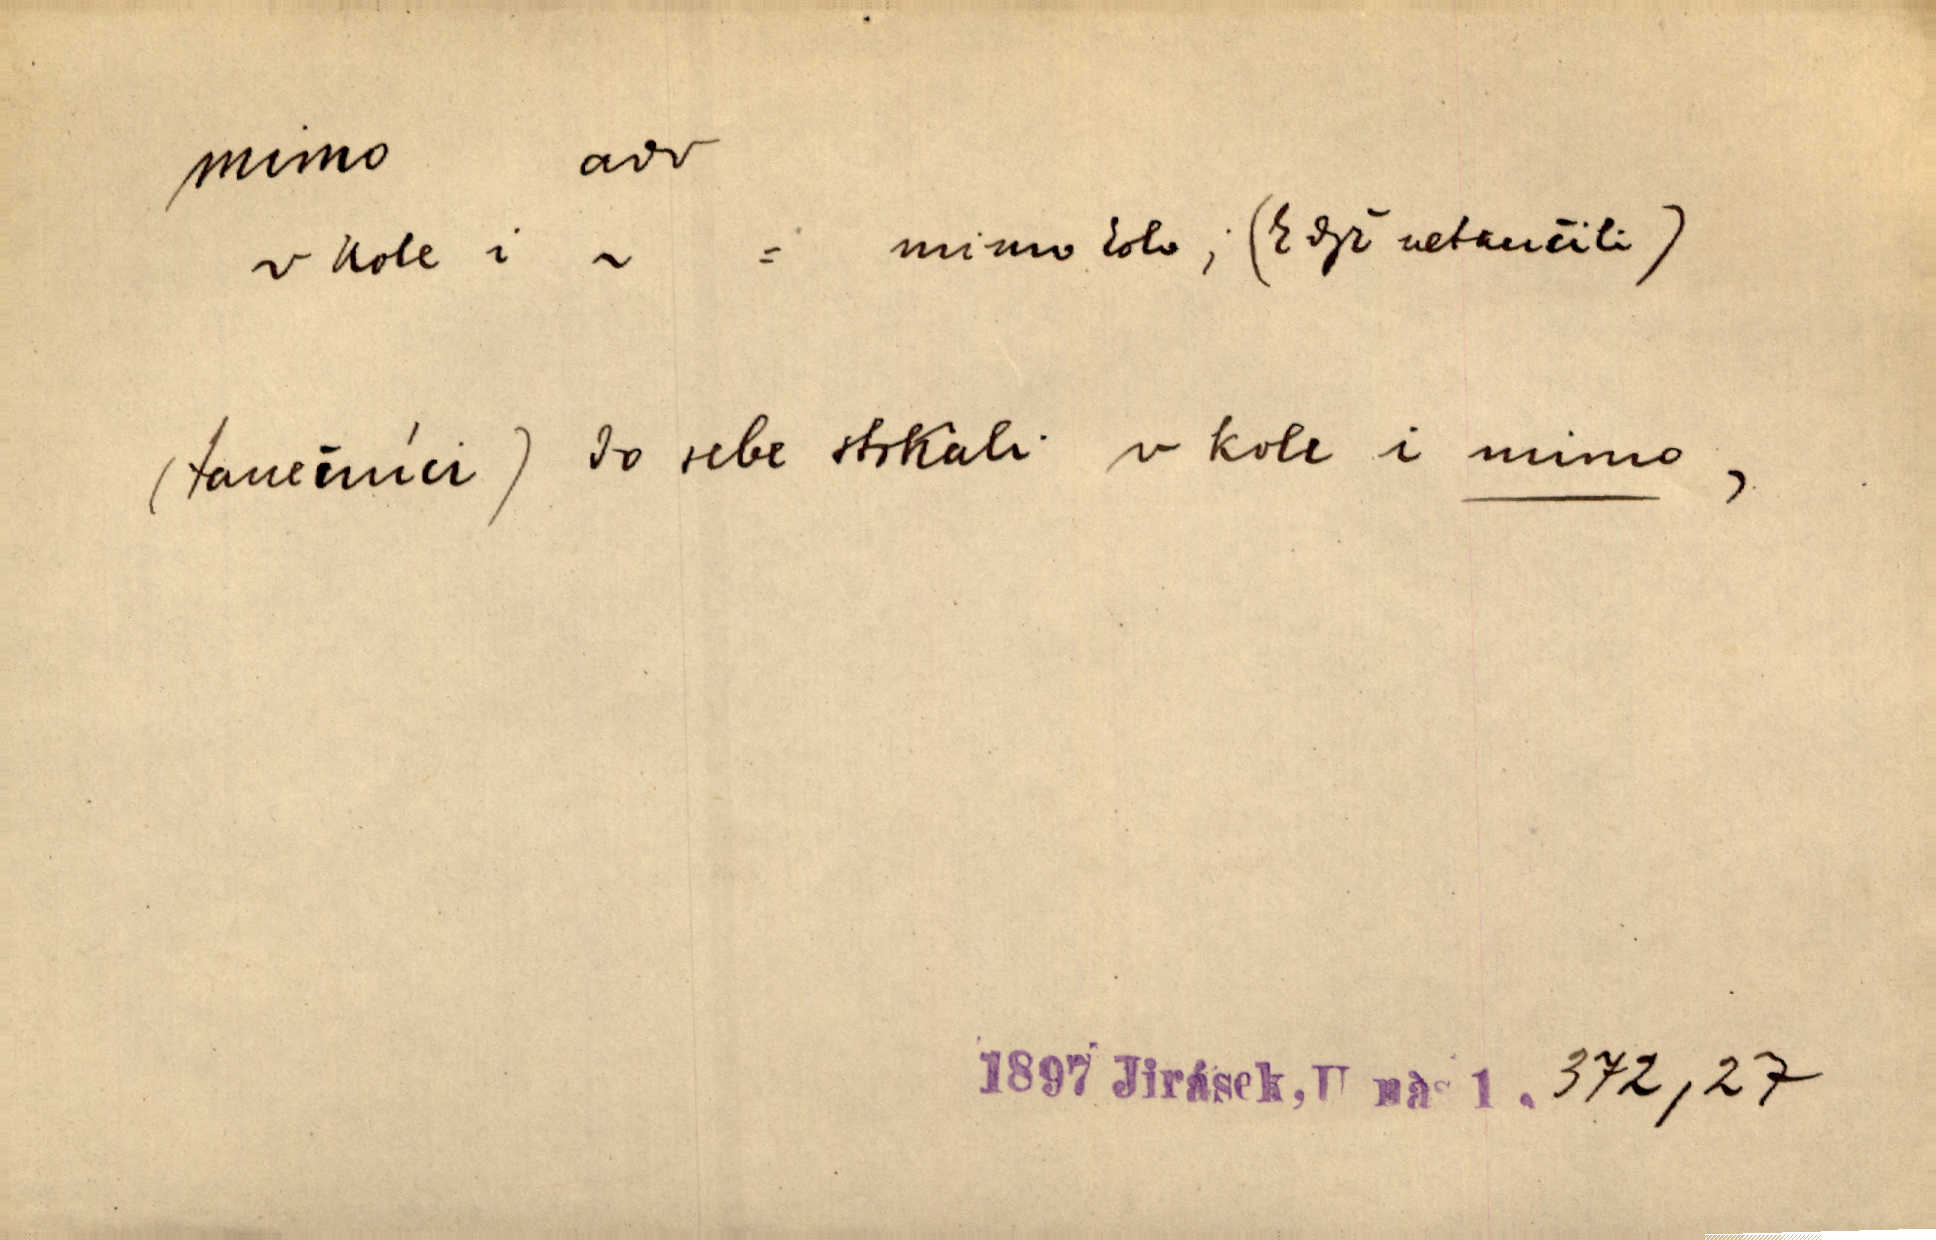 mimo adv
v kole i ~ = mimo kolo; (když netančili)
(tanečníci) do sebe strkali v kole i mimo,
1897 Jirásek, U nás 1. 372,27